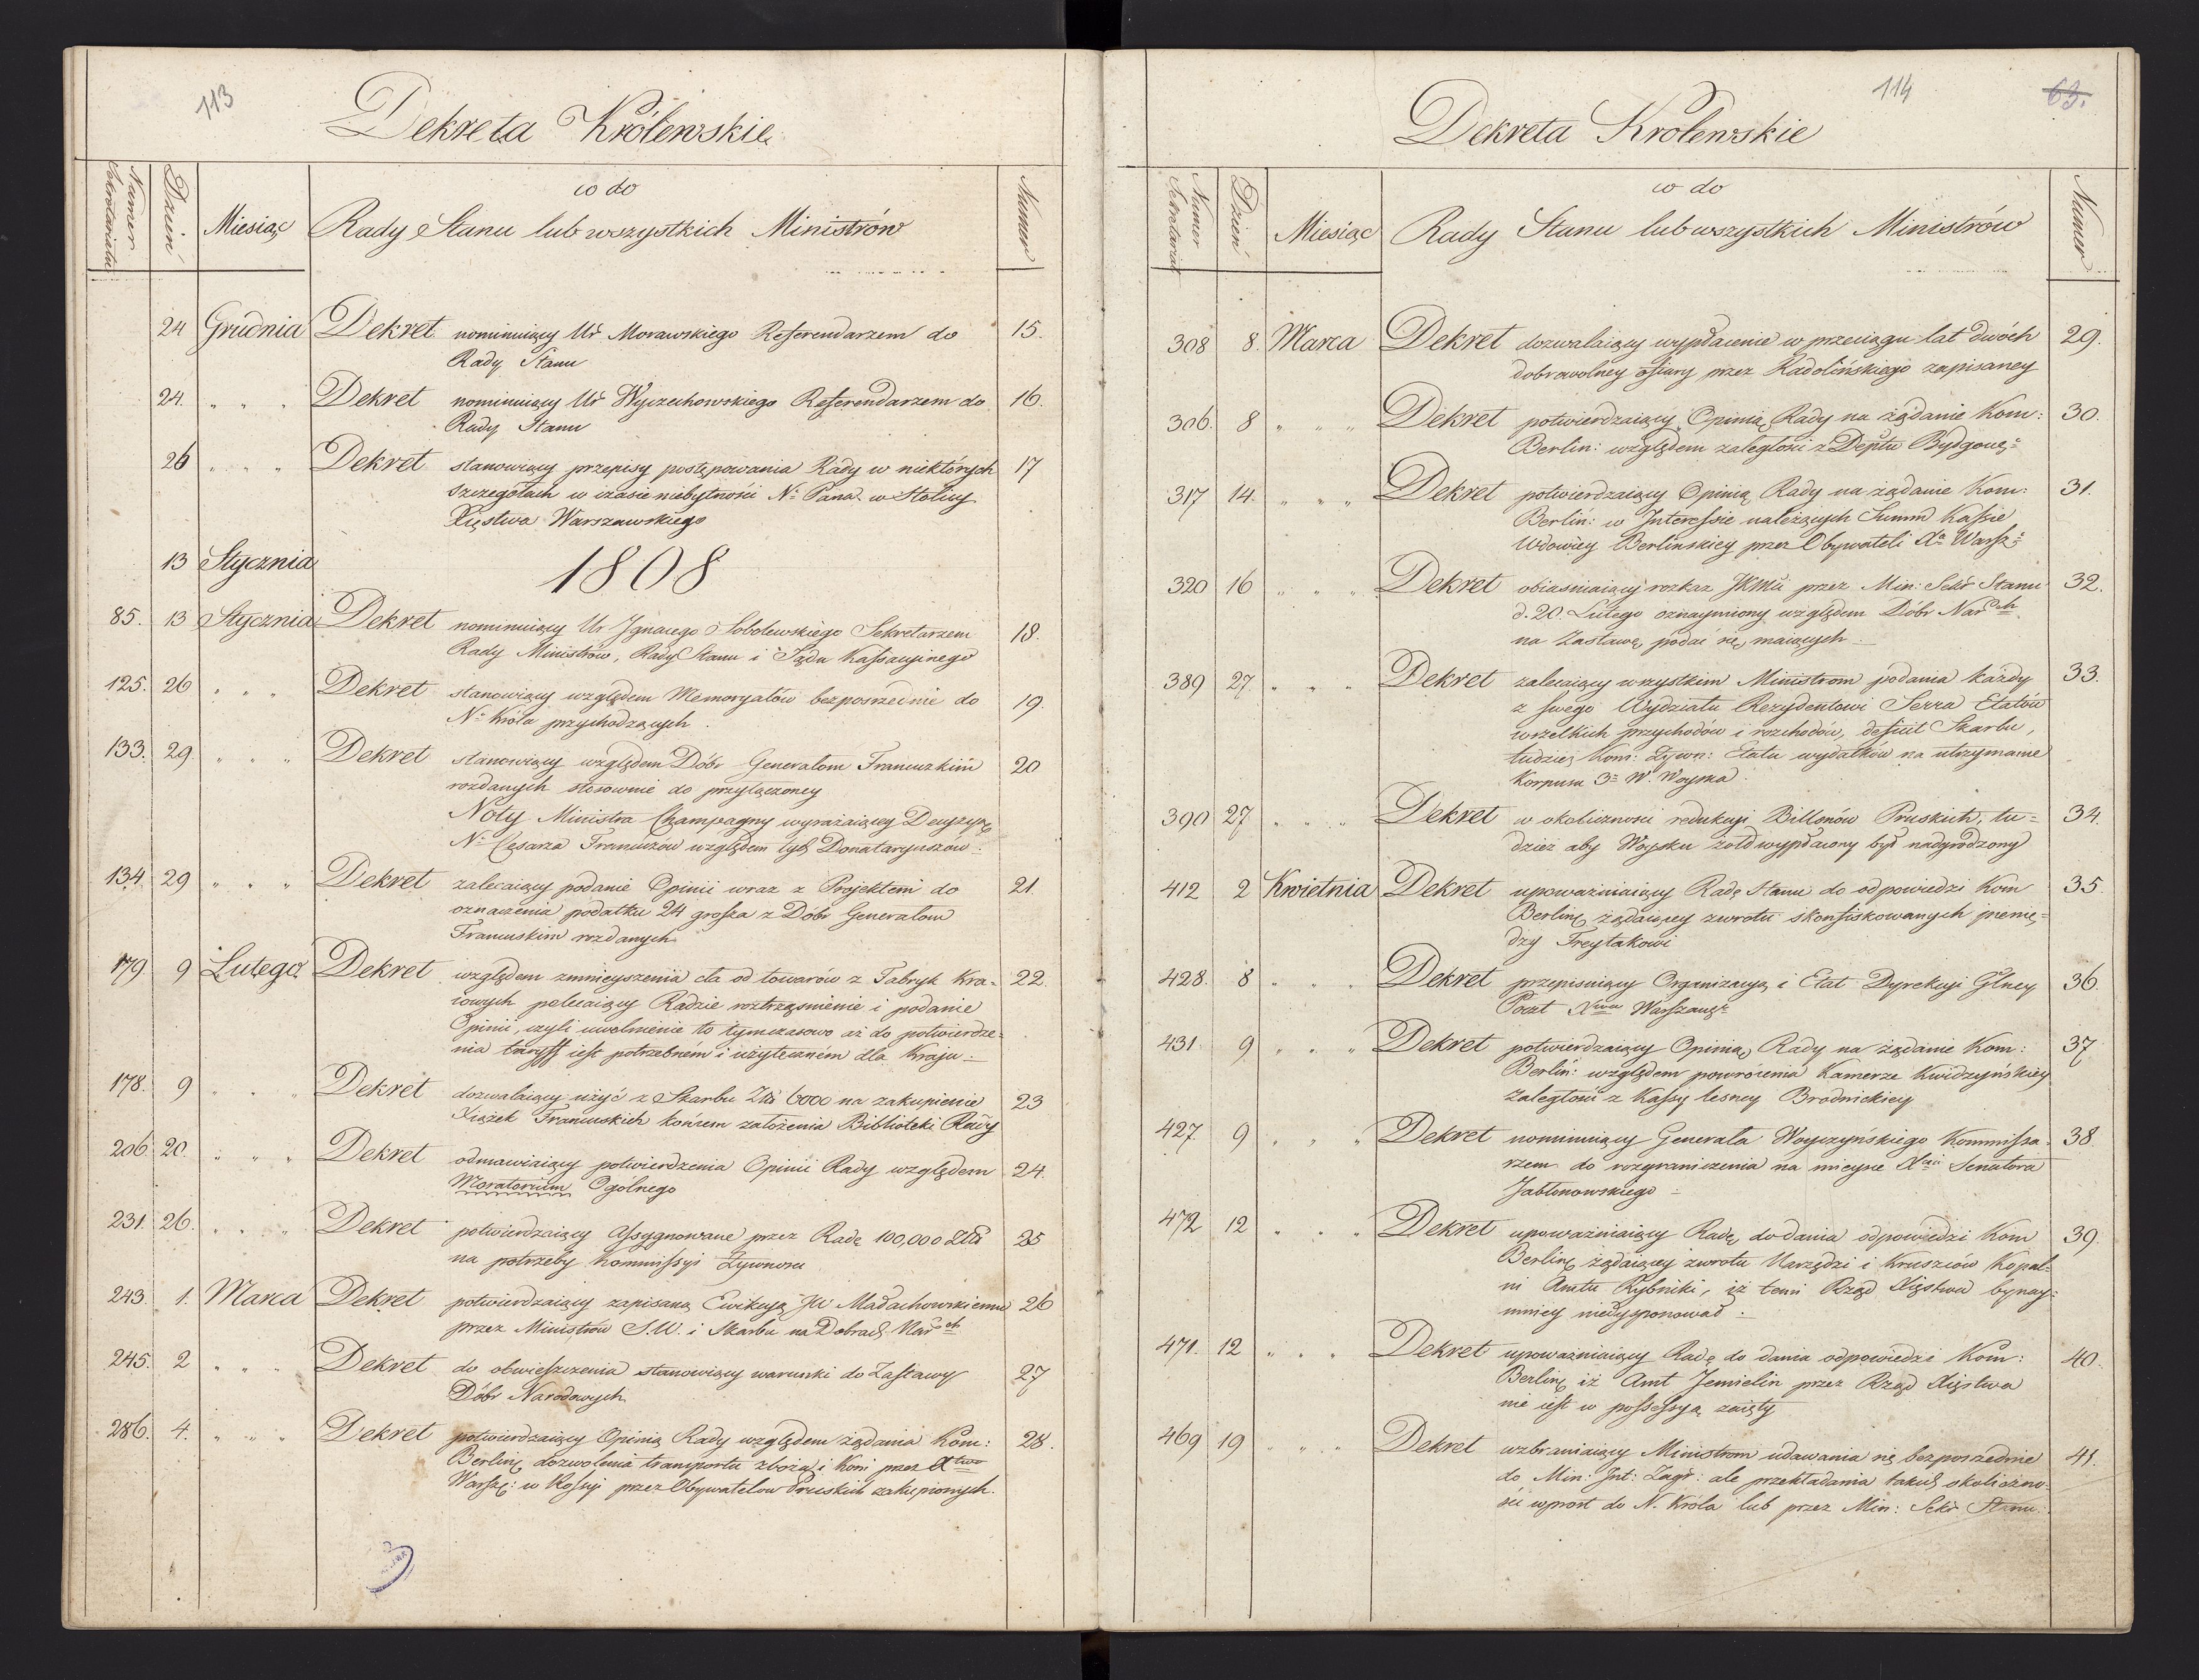 113
Dekreta Królewskie
Numer Sekretariatu
Dzień
Miesiąc
co do
Rady Stanu lub wszystkich Ministrów
Numer
24 Grudnia Dekret nominuiący Ur Morawskiego Referendarzem do 15.
Rady Stanu
24. " " " Dekret nominuiący Ur Wyczechowskiego Referendarzem do 16.
Rady Stanu
26 " " " Dekret stanowiący przepisy postępowania Rady w niektórych 17
szczegółach w czasie niebytności N: Pana w Stolicy
Xięstwa Warszawskiego
13 Stycznia 1808
85. 13 Stycznia Dekret nominuiący Ur Ignacego Sobolewskiego Sekretarzem 18.
Rady Ministrów, Rady Stanu i Sądu Kassacyinego
125. 26 " " " Dekret stanowiący względem Memoryałów bezpośrednie do 19.
N: Króla przychodzących.
133. 29 " " " Dekret stanowiący względem Dóbr Generałom Francuzkim 20
rozdanych stosownie do przyłączoney
Noty Ministra Champagny wyrażaiącey Decyzyę
N: Cesarza Francuzów względem tych Donataryuszów.
134. 29 " " " Dekret zalecaiący podanie Opinii wraz z Projektem do 21.
oznaczenia podatku 24 grosza z Dóbr Generałom
Francuskim rozdanych
179 9 Lutego Dekret względem zmnieyszenia cła od towarów z Fabryk Kra= 22.
iowych polecaiący Radzie roztrząśnienie i podanie
Opinii, czyli uwolnienie to tymczasowo aż do potwierdze=
nia taryff iest potrzebném i użyteczném dla Kraju.
178. 9 " " Dekret dozwalaiący użyć z Skarbu Złł 6000 na zakupienie 23
Xiążek Francuskich końcem założenia Biblioteki Rady
206. 20. " " " Dekret odmawiaiący potwierdzenia Opinii Rady względem 24.
Moratorium Ogólnego
231. 26. " " " Dekret potwierdzaiący assygnowane przez Radę 100,000 Złł 25
na potrzeby Kommissyi Żywności
243. 1. Marca Dekret potwierdzaiący zapisaną Ewikcyą Małachowskiemu 26
przez Ministrów S.W. i Skarbu na Dobrach Narch
245. 2 " " " Dekret do obwieszczenia stanowiący warunki do Zastawy 27
Dóbr Narodowych
286. 4. " " " Dekret potwierdzaiący Opinią Rady względem żądania Kom: 28.
Berling dozwolenia transportu zboża i Koni przez Xtwo
Warsz: w Rossyi przez Obywatelów Pruskich zakupionych.
114
63.
Dekreta Królewskie
Numer Sekretariat
Dzień
Miesiąc
co do
Rady Stanu lub wszystkich Ministrów
Numer
308 8. Marca Dekret dozwalaiący wypłacenie w przeciągu lat dwóch 29.
dobrowolney ofiary przez Radolińskiego zapisaney
306. 8 " " " Dekret potwierdzaiący Opinią Rady na żądanie Kom: 30.
Berlin: względem zaległości z Deptu Bydgos:
317 14. " " " Dekret potwierdzaiący Opinią Rady na żądanie Kom: 31.
Berlin: w Interessie należących Summ Kassie
Wdowiey Berlinskiey przez Obywateli Xa Warsz:
320 16 " " " Dekret obiaśniaiący rozkaz JKMci przez Min: Sekr Stanu 32.
d. 20. Lutego oznaymiony względem Dóbr Narch
na Zastawę podać się maiących.
389 27 " " " Dekret zalecaiący wszystkim Ministrom podania każdy 33.
z swego Wydziału Rezydentowi Serra Etatów
wszelkich przychodów i rozchodów, deficit Skarbu,
tudzież Kom: Żywn: Etatu wydatków na utrzymanie
Korpusu 3: W. Woyska.
390 27 " " " Dekret w okoliczności redukcyi Billonów Pruskich, tu= 34.
dzież aby Woysku żołd wypłacony był nadgrodzony
412 2 Kwietnia Dekret upoważniaiący Radę Stanu do odpowiedzi Kom 35.
Berling żądaiącey zwrotu skonfiskowanych pienię=
dzy Freytakowi
428. 8 " " " Dekret przepisuiący Organizacyą i Etat Dyrekcyi Głney 36.
Poczt Xtwa Warszawsk
431 9 " " " Dekret potwierdzaiący Opinią Rady na żądanie Kom: 37
Berlin: względem powrócenia Kamerze Kwidzyńskiey
zaległości z Kassy lesney Brodnickiey
427 9 " " " Dekret nominuiący Generała Woyczyńskiego Kommissa= 38.
rzem do rozgraniczenia na mieysce Xcia Senatora
Jabłonowskiego
472 12 " " " Dekret upoważniaiący Radę do dania odpowiedzi Kom 39.
Berling żądaiącey zwrotu Narzędzi i Kruszców Kopal=
ni Amtu Rybniki, iż temi Rząd Xięstwa bynay=
mniey niedysponował.
471. 12 " " " Dekret upoważniaiący Radę do dania odpowiedzi Kom: 40.
Berling iż Amt Jemielin przez Rząd Xięstwa
nie iest w possessyą zaięty
469 19 " " " Dekret wzbraniaiący Ministrom udawania się bezpośrednie 41.
do Min: Int: Zagr: ale przekładania takich okoliczno=
ści wprost do N. Króla lub przez Min: Sekr Stanu.